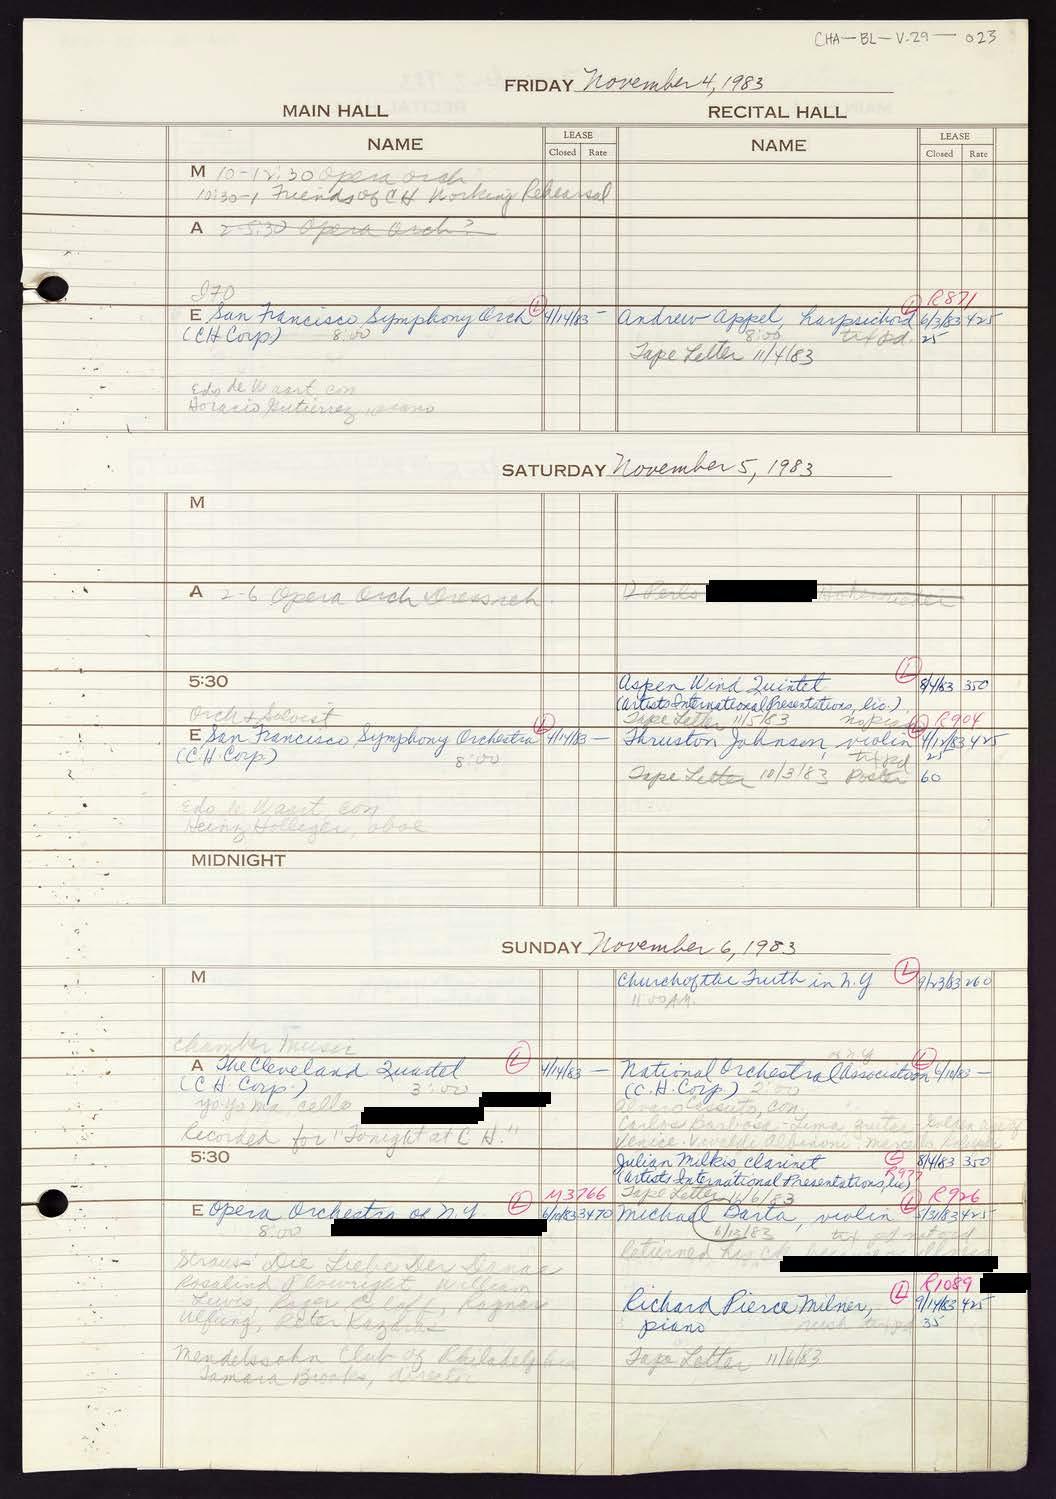 CHA-BL-V-29-023
FRIDAY November 4, 1983
MAIN HALL RECITAL HALL
NAME LEASE NAME LEASE
Closed Rate Closed Rate
M 10-12:30 Opera Orch
10:30-1 Friends of CH Working Rehearsal
A 2-5:30 Opera Orch?
R871
E San Francisco Symphony Orch L 4/14/83 — Andrew Appel harpsichord L 6/3/83 425
(CH Corp) 8:00 8:00 txt pd. 25
Tape Letter 11/4/83
Edo de Waart, con
Horacio Gutierrez, piano
SATURDAY November 5, 1983
M
A 2-6 Opera Orch Dress reh
5:30 Aspen Wind Quintet L 8/4/83 350
(Artists International Presentations, Inc.)
Orch & Soloist Tape Letter 11/5/83 R904
E San Francisco Symphony Orchestra L 4/14/83 — Thruston Johnson, violin L 4/12/83 425
(C.H. Corp) 8:00 txt pd 25
Tape Letter 10/3/83 Poster 60
Edo de Waart, con
Heinz Holliger, oboe
MIDNIGHT
SUNDAY November 6, 1983
M Church of the Truth in N.Y L 9/23/83 260
11:00 A.M.
Chamber Music
of N.Y
A The Cleveland Quartet L 4/14/83 — National Orchestral Association L —
(C.H. Corp.) 3:00 (C.H. Corp.) 2:00
Yo Yo Ma, cello Alvaro Cassuto, con.
Carlos Barbosa-Lima guitar - Golden age of
Recorded for "Tonight at C H." Venice - Vivaldi Albinoni, Marcello
5:30 Julian Milkis clarinet L 8/4/83 350
(Artists International Presentations, Inc) R977
M3766 Tape Letter 6/6/83 R926
E Opera Orchestra of N.Y. L 6/10/83 3470 Michael Barta, violin L 5/31/83 425
8:00 6/13/83 txt pd
Strauss' Die Liebe Der Danae returned his ck.
Rosalind Plowright, William R1089
Lewis, Roger Roloff, Ragnar Richard Pierce Milner, L 9/14/83 425
Ulfung, Peter Kazaras piano rush txt pd 35
Mendelssohn Club of Philadelphia Tape Letter 11/6/83
Tamara Brooks, director